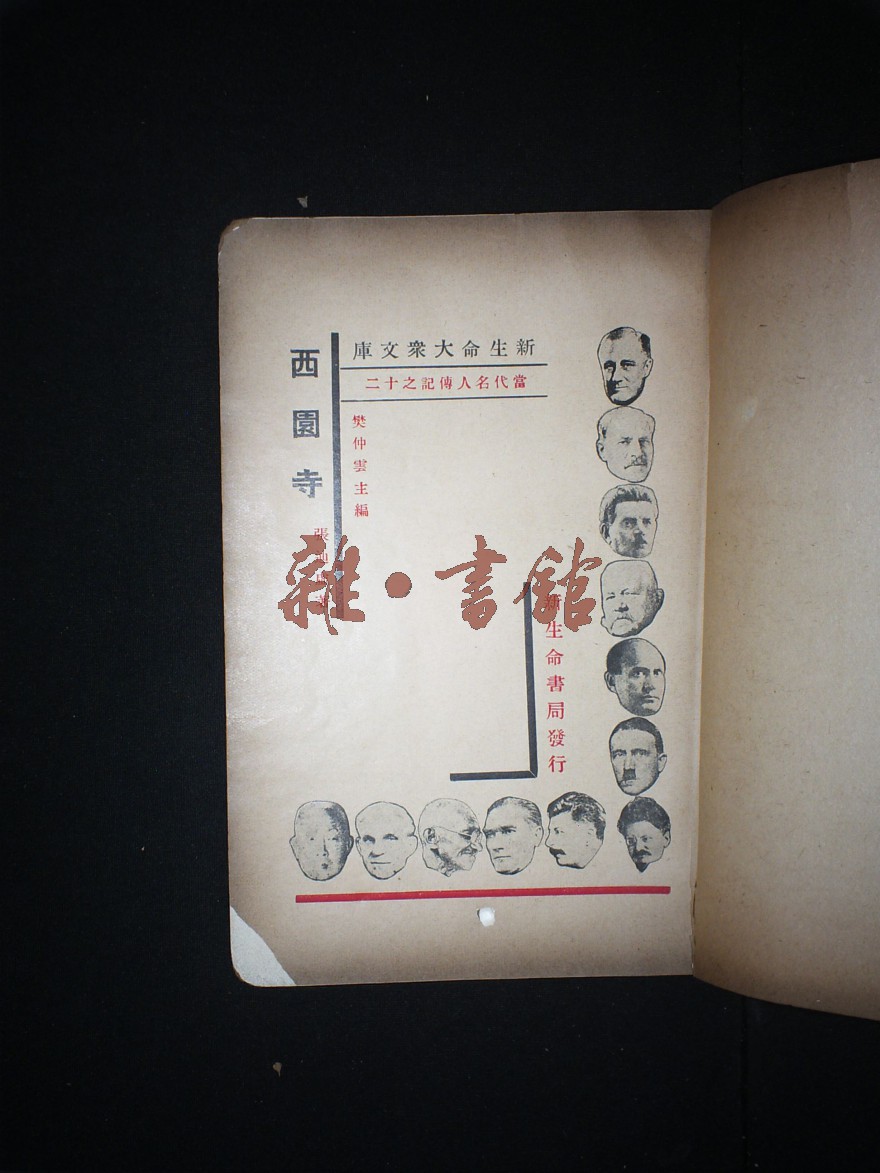 新生命大衆文庫
當代名人傳記之十二
樊仲雲主編
西園寺
張
新生命書局發行
雜·書館